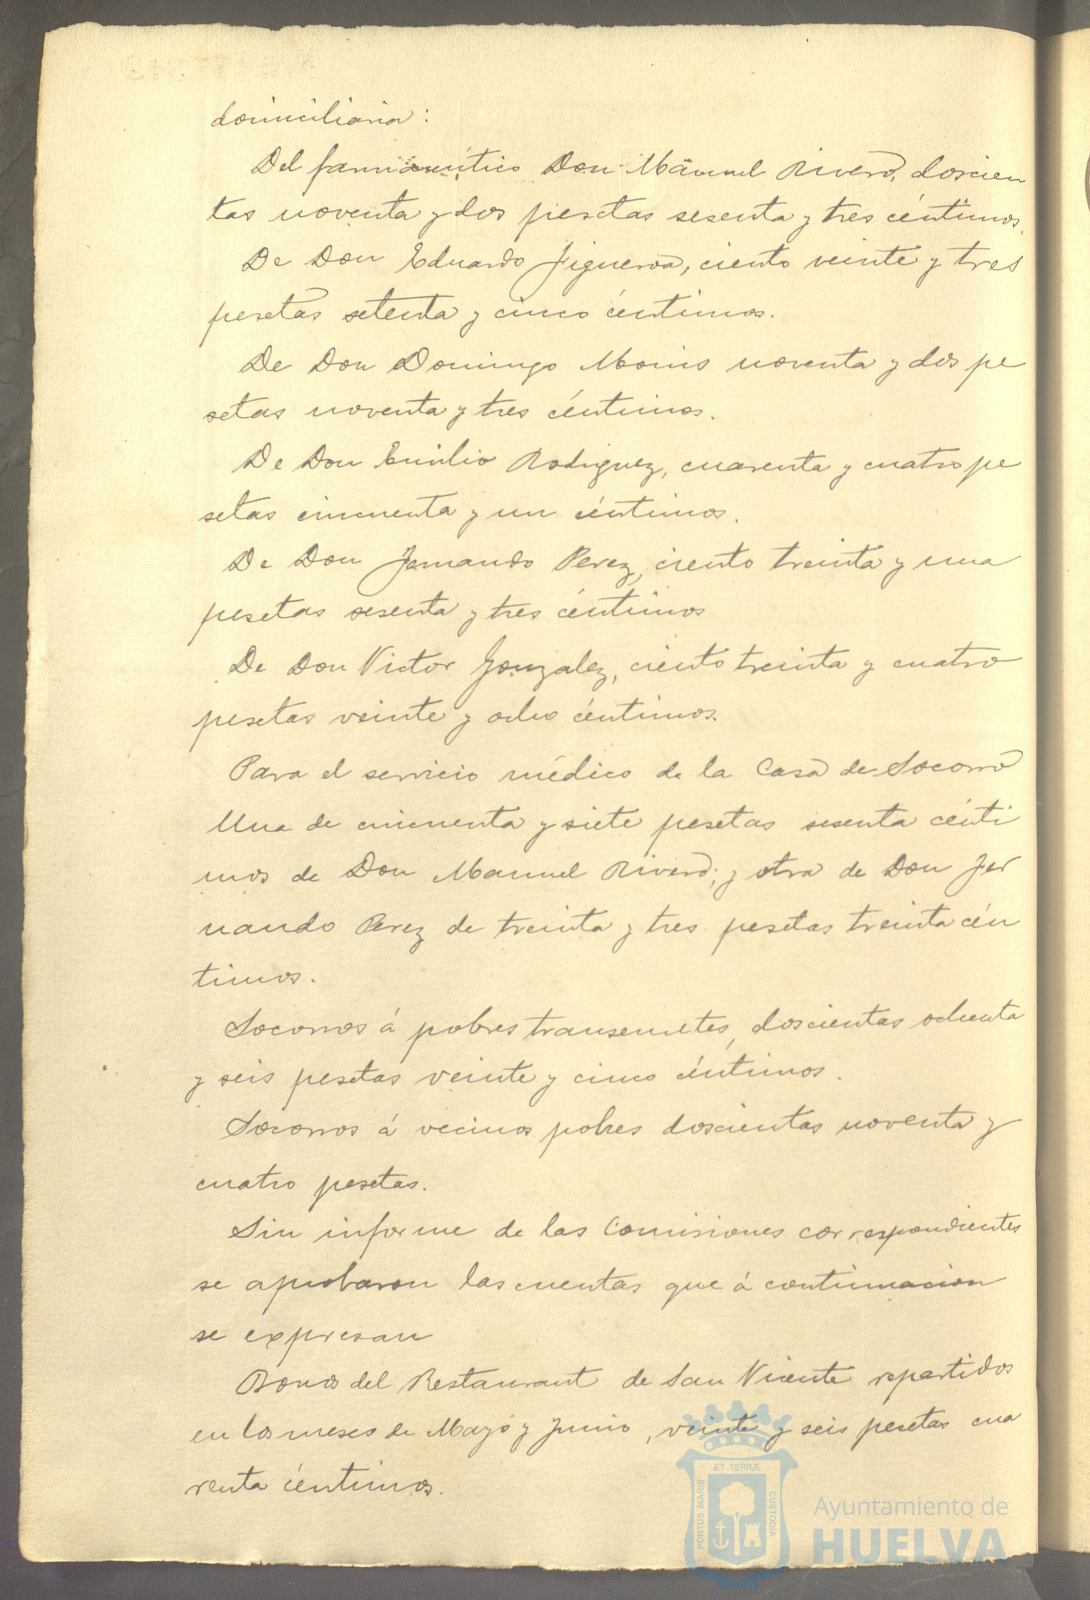 domiciliaria:
Del farmacéutico Don Manuel Rivero, doscien
tas noventa y dos pesetas sesenta y tres céntimos.
De Don Eduardo Figueroa, ciento veinte y tres
pesetas setenta y cinco céntimos.
De Don Domingo Monis noventa y dos pe
setas noventa y tres céntimos.
De Don Emilio Rodriguez, cuarenta y cuatro pe
setas cincuenta y un céntimos.
De Don Fernando Perez, ciento treinta y una
pesetas sesenta y tres céntimos
De Don Victor Gonzalez, ciento treinta y cuatro
pesetas veinte y ocho céntimos.
Para el servicio médico de la Casa de Socorro
Una de cincuenta y siete pesetas sesenta cénti
mos de Don Manuel Rivero; y otra de Don Fer
nando Perez de treinta y tres pesetas treinta cén
timos.
Socorros á pobres transeuntes, doscientas ochenta
y seis pesetas veinte y cinco céntimos.
Socorros á vecinos pobres doscientas noventa y
cuatro pesetas.
Sin informe de las Comisiones correspondientes
se aprobaron las cuentas que á continuacion
se expresan
Bonos del Restaurant de San Vicente repartidos
en los meses de Mayo y Junio, veinte y seis pesetas cua
renta céntimos.
PORTUS MARIS ET TERRÆ CUSTODIA
Ayuntamiento de
HUELVA